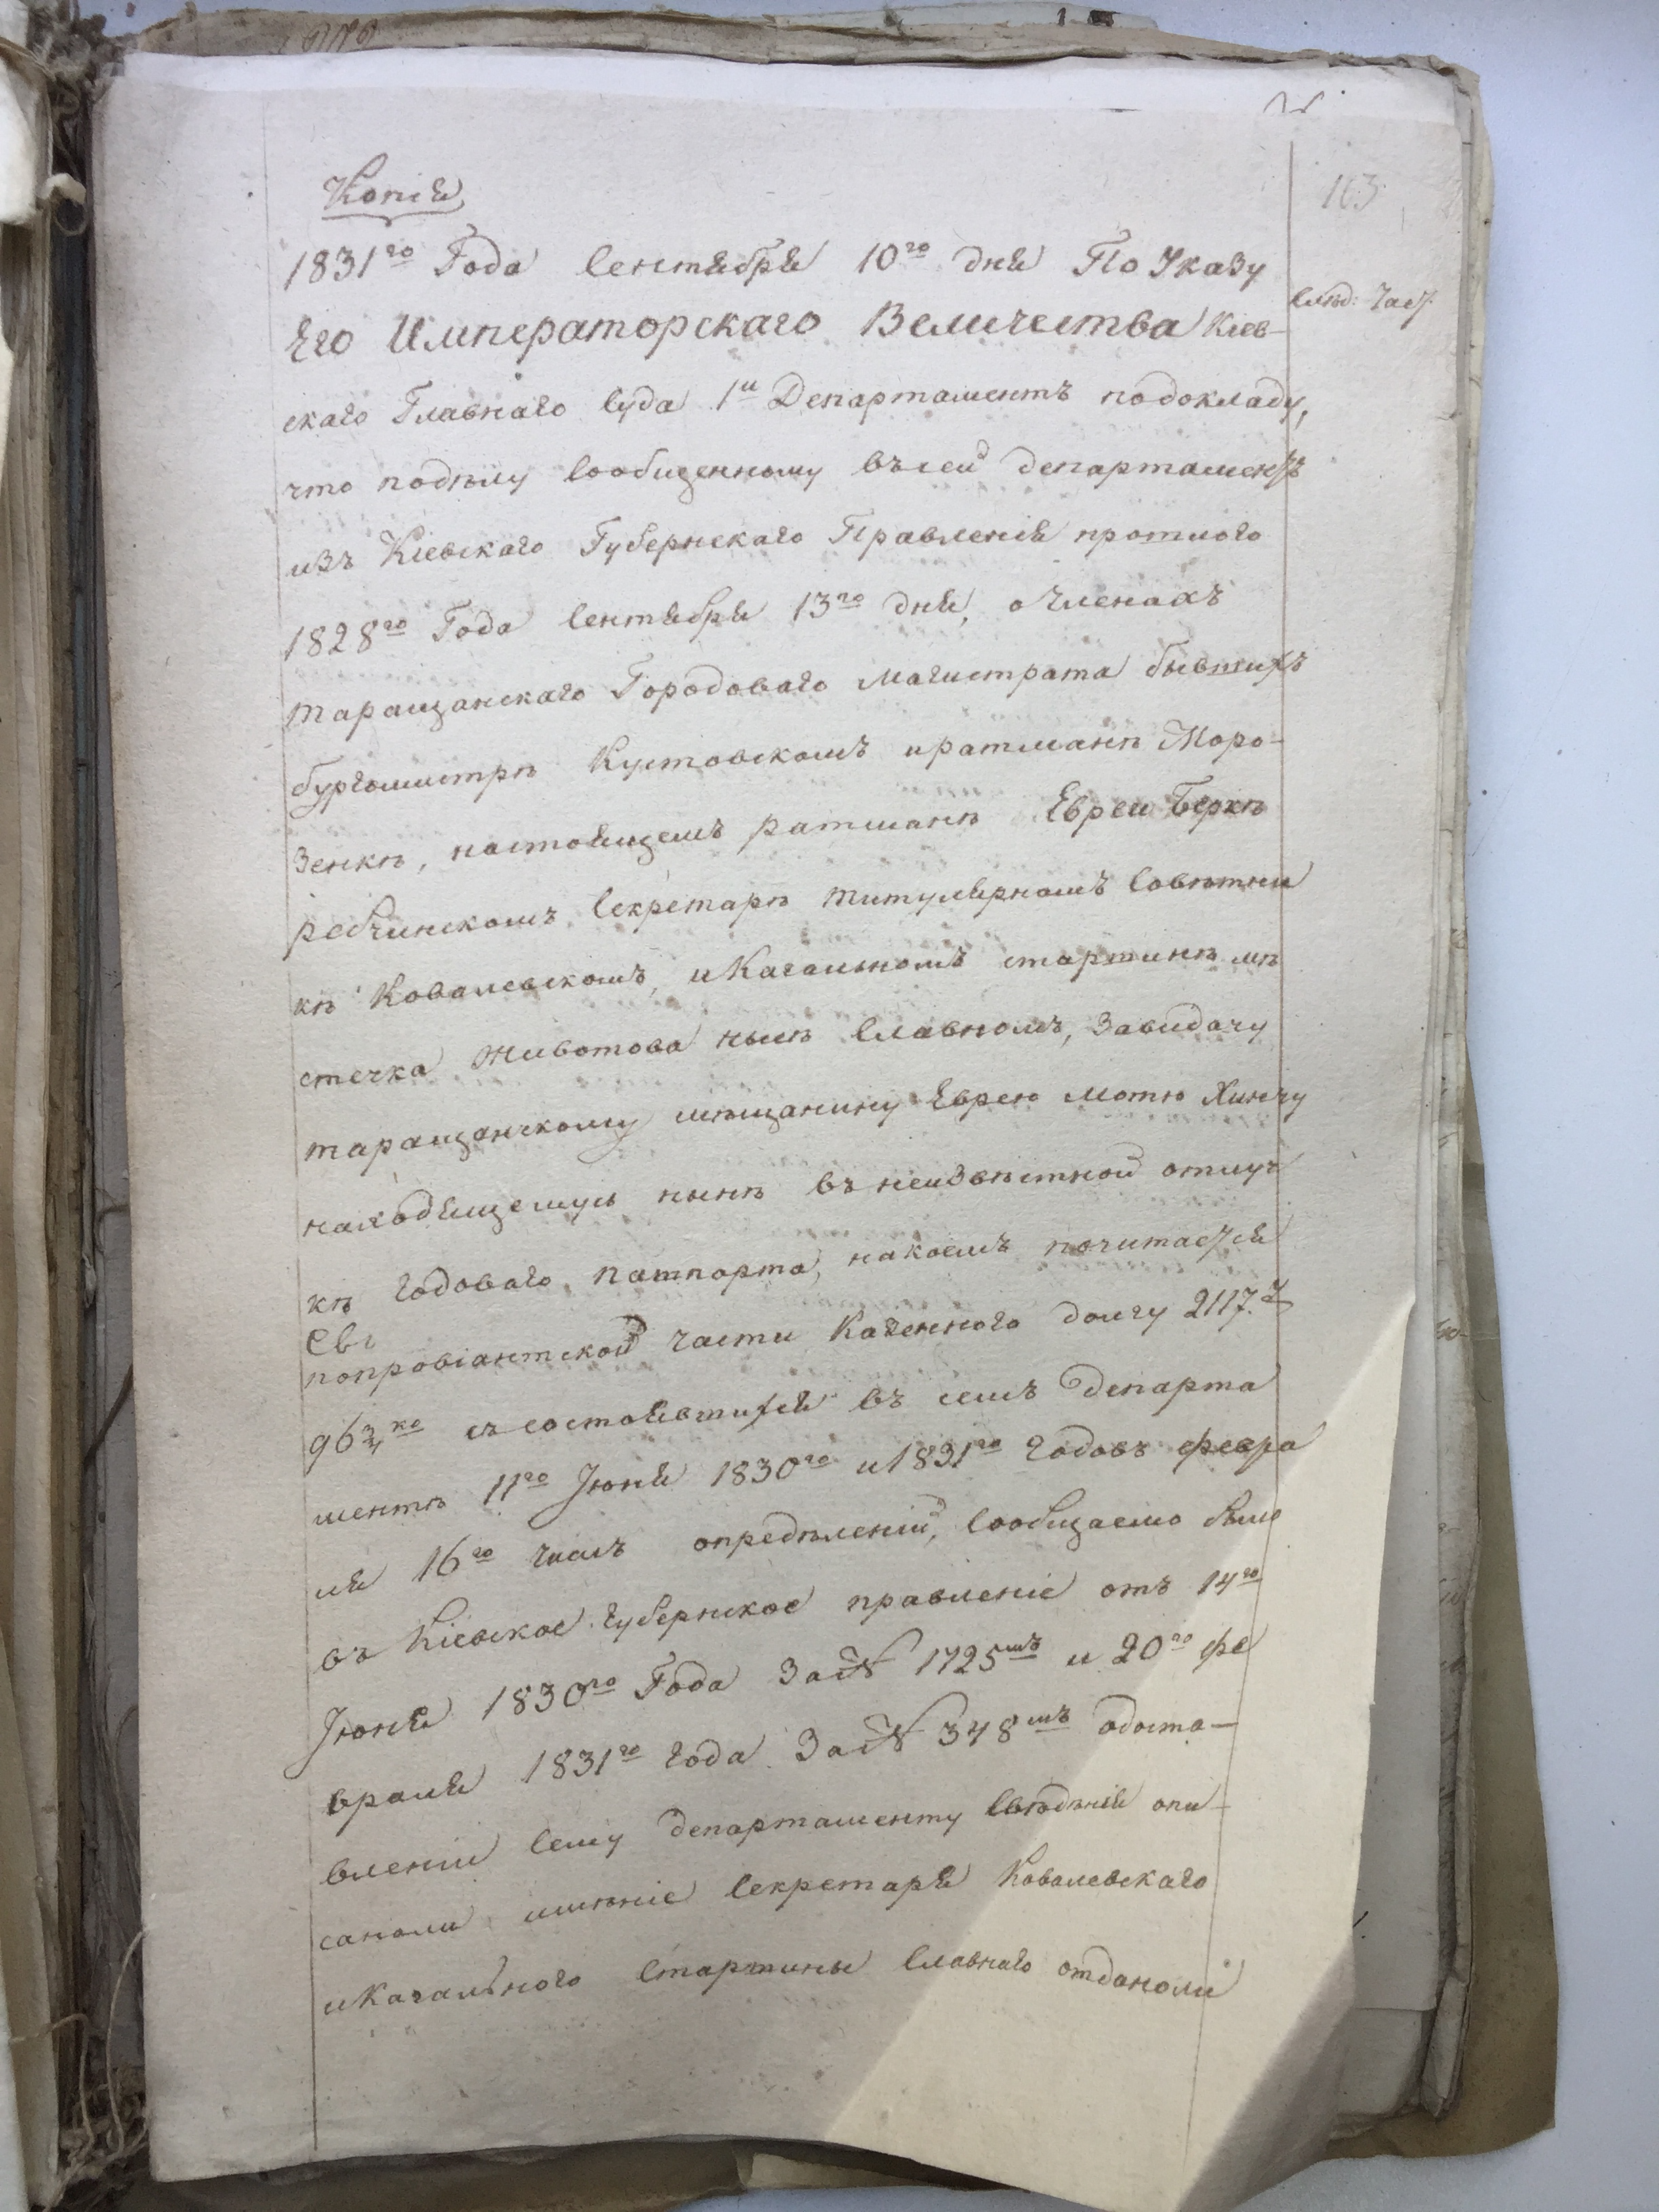 Копія
163
1831го Года Сентября 10го дня По Указу
слѣд: Част:
Его Императорскаго Величества Кіев-
скаго Главнаго Суда 1й Департаментъ подокладу,
что подѣлу сообщенному въсей департаментъ
изъ Кіевскаго Губернскаго Правленія прошлого
1828го Года Сентября 13го дня, очленахъ
таращанскаго Городоваго Магистрата бывшихъ
бургомистрѣ Кустовскомъ иратманѣ Моро-
зенкѣ, настоящемъ ратманѣ Евреи Беркѣ
ребчинскомъ, Секретарѣ титулярномъ Совѣтни
кѣ Ковалевскомъ, иКагальномъ старшинѣ мѣ
стечка Животова нынѣ Славномъ, Завидачу
таращанскому мѣщанину Еврею Мотю Хинчу
находящемуся нынѣ въ неизвѣстной отлуч
кѣ годоваго пашпорта, накоемъ почитается
попровіантской части Казенного долгу 2117.
96¾ ко съ состоявшихся въ семъ департа
ментѣ 11го Іюня 1830го и1831го годовъ февра
ля 16го числъ опредѣленій, сообщаемо было
въ Кіевское губернское правленіе отъ 14го
Іюня 1830го Года За№ 1725мъ и 20го фе
враля 1831го года За№ 348мъ одоста-
вленіи Сему департаменту Свѣдѣній опи-
саноли имѣніе Секретаря Ковалевскаго
иКагального Старшины Славнаго отданоли